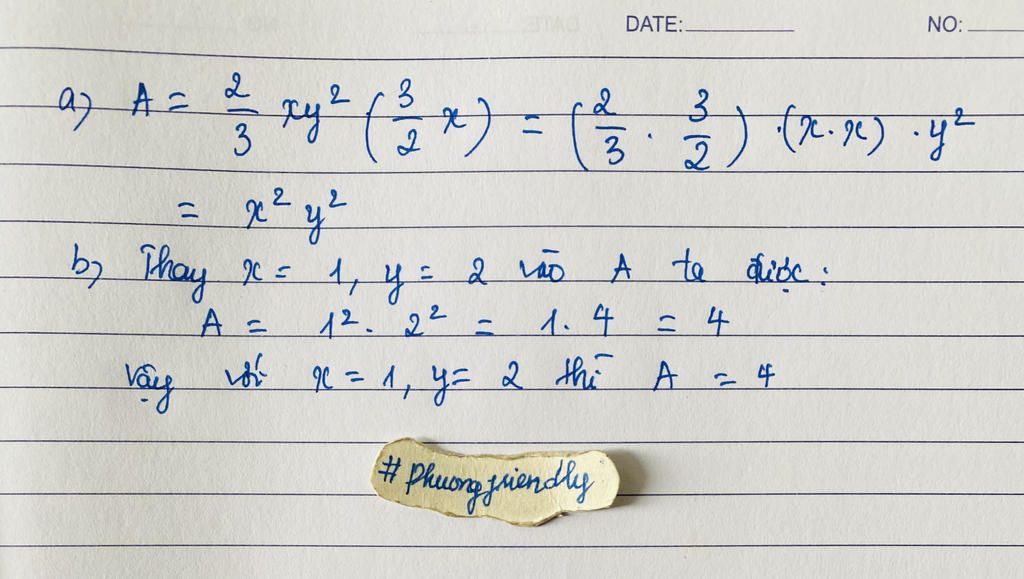 DATE: NO:
a) A = 2/3 xy² (3/2 x) = (2/3 . 3/2) . (x.x) . y²
= x² y²
b) Thay x = 1, y = 2 vào A ta được:
A = 1². 2² = 1. 4 = 4
Vậy với x = 1, y = 2 thì A = 4
#Phuongfriendly